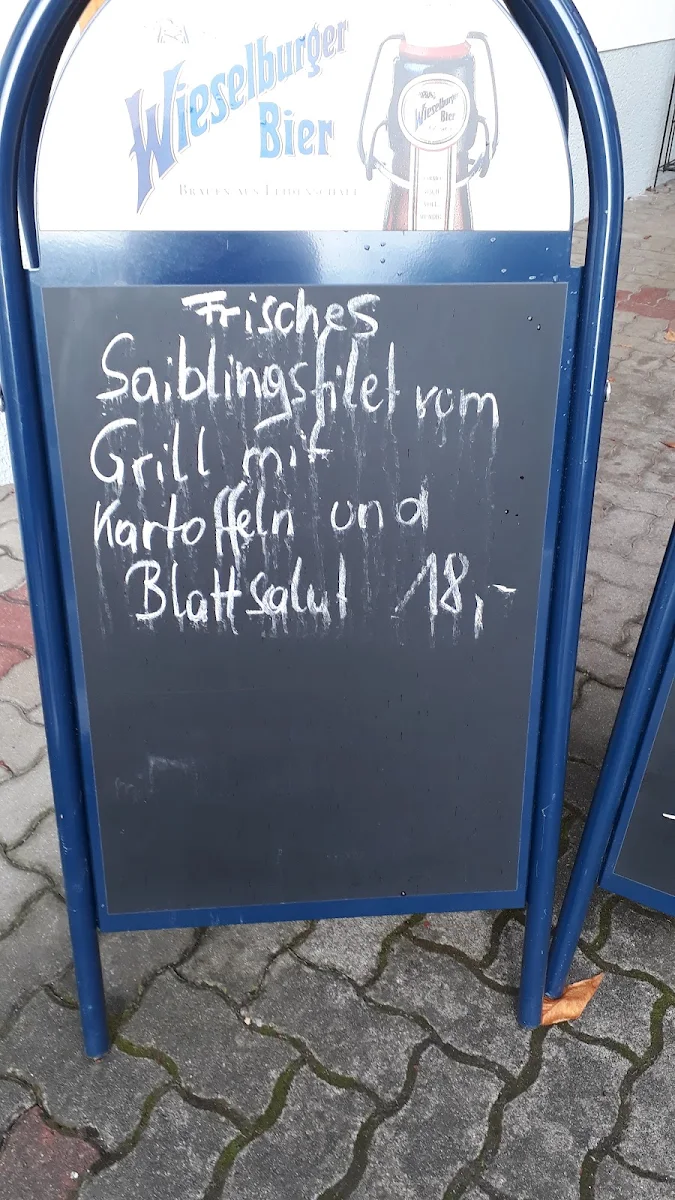 Wieselburger
Bier
BRAUEN AUS LEIDENSCHAFT
Wieselburger
Bier
Frisches
Saiblingsfilet vom
Grill mit
Kartoffeln und
Blattsalat 18,-